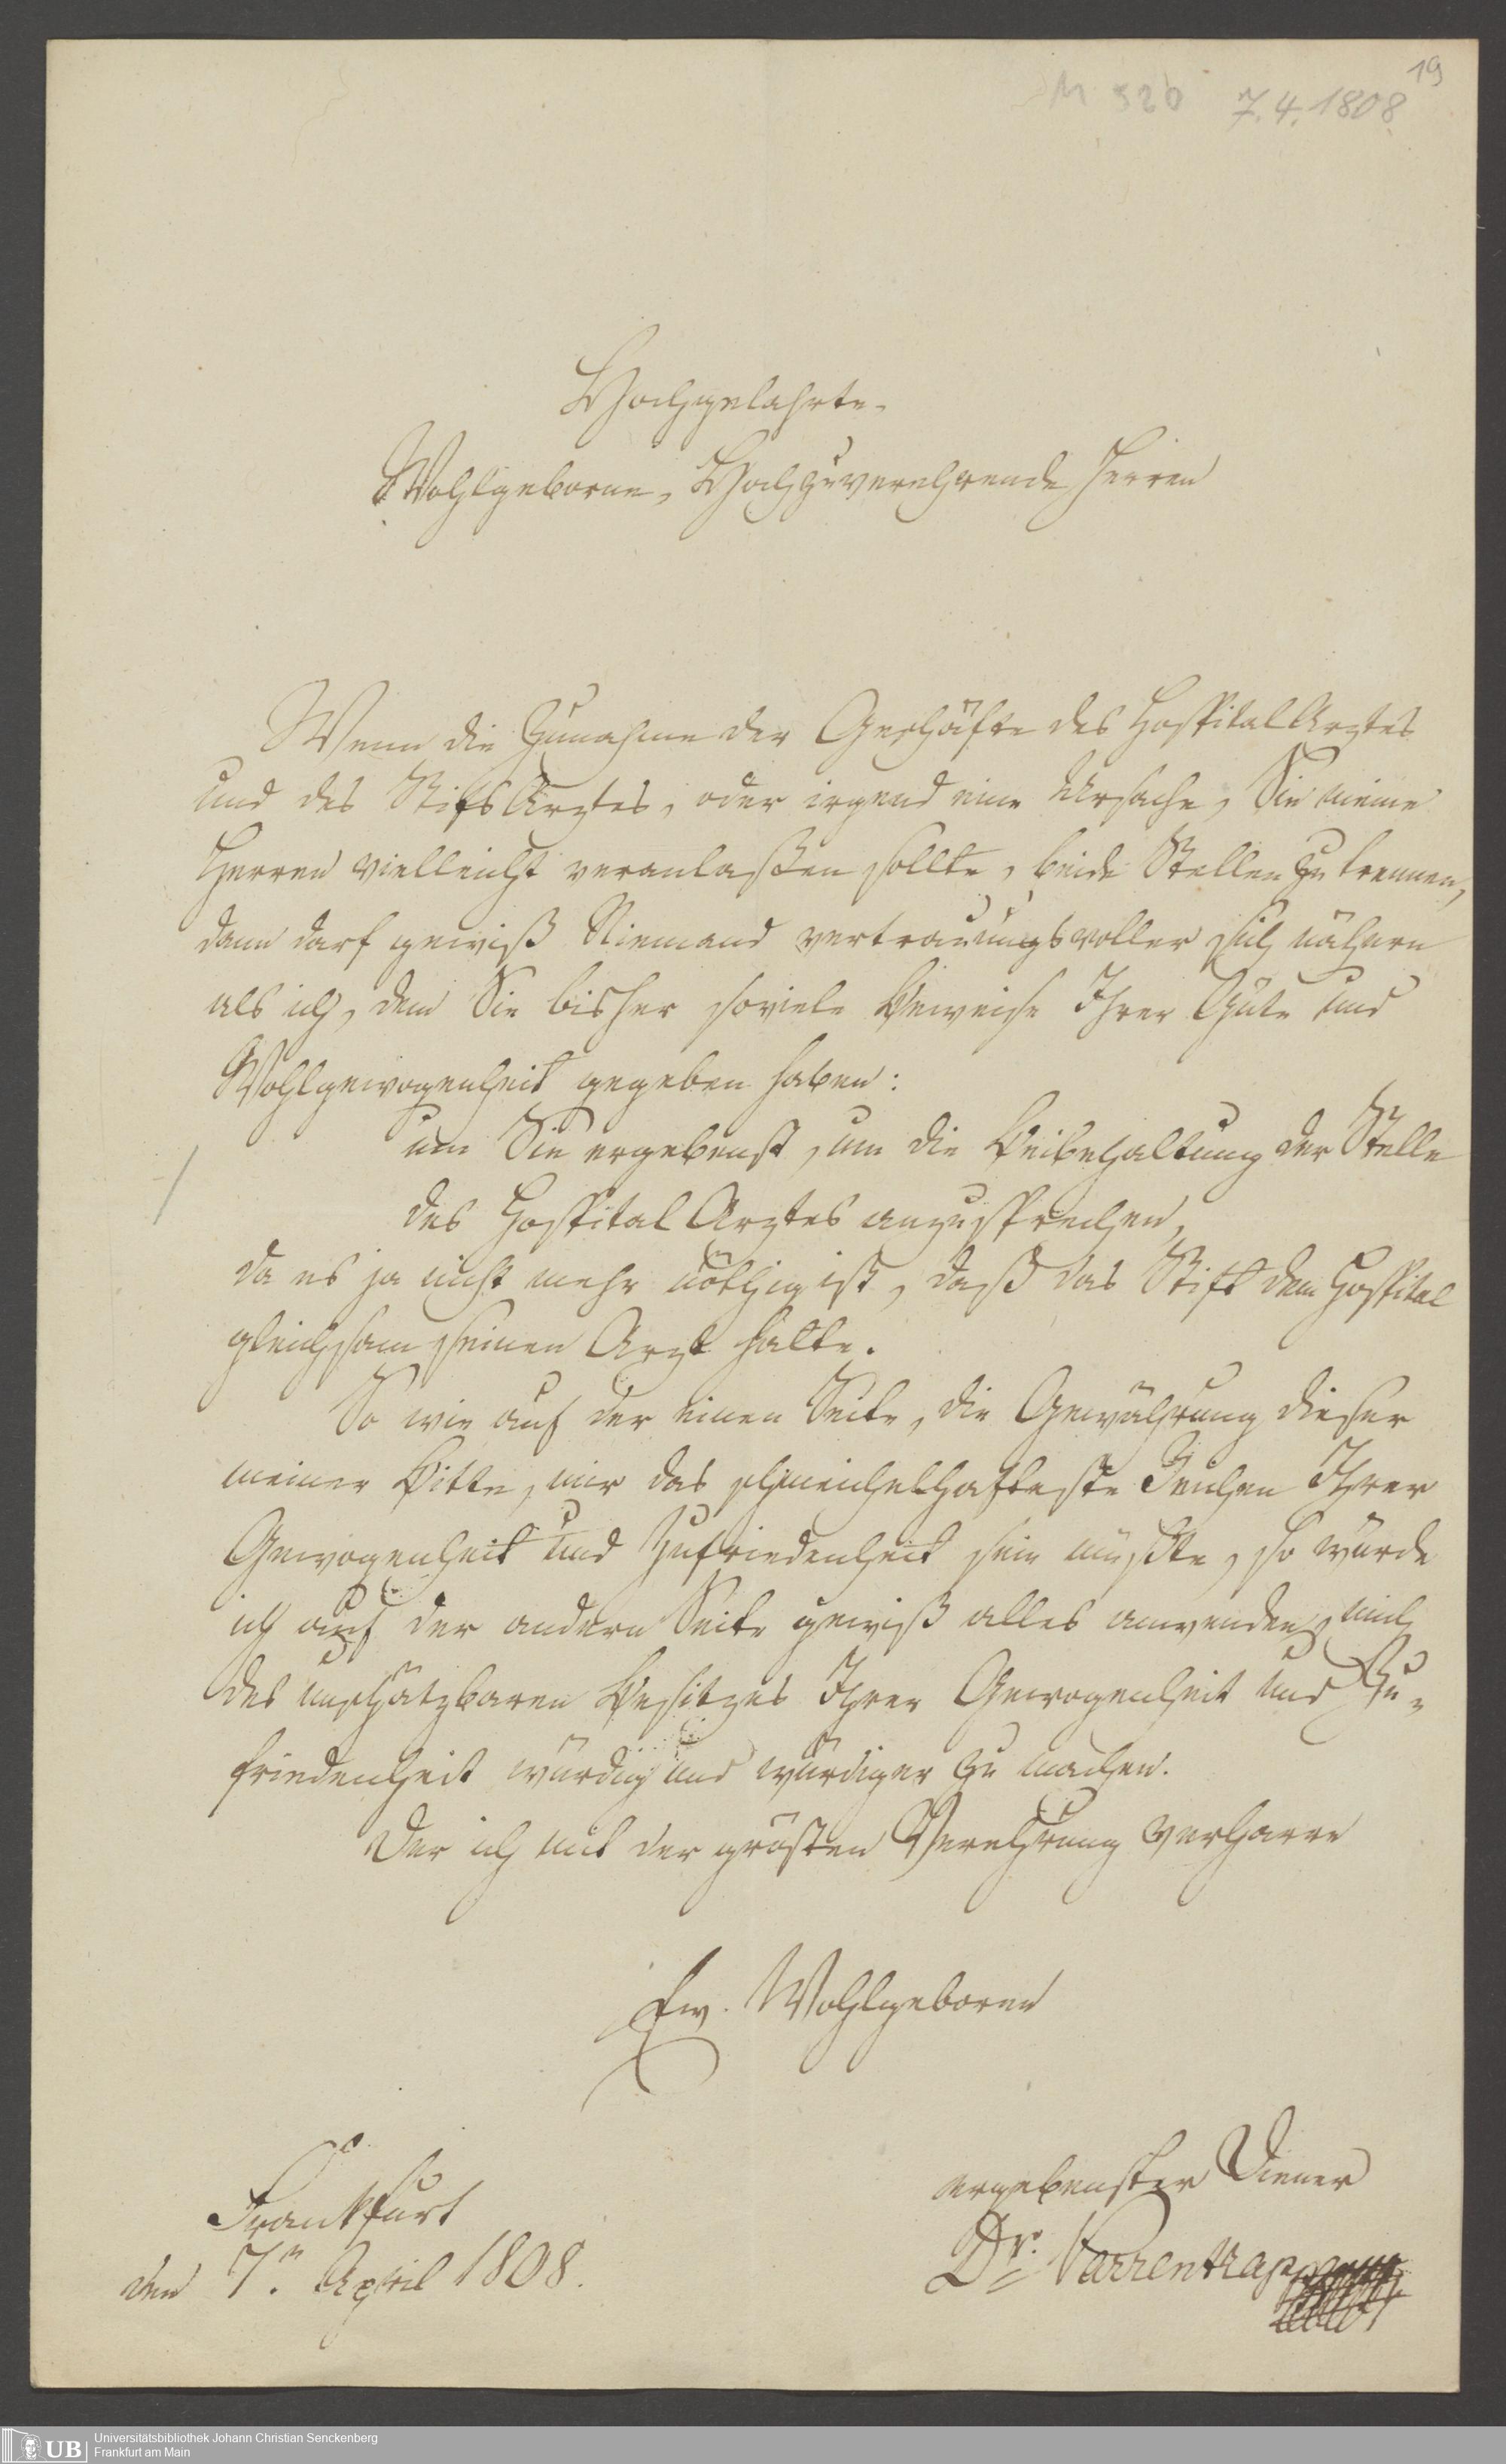 19
M 320 7.4.1808
Hochgelahrte
Wohlgeborne, Hochzuverehrende Herren
Wenn die Zunahme der Geschäfte des Hospital Arztes
und des Stifts Arztes, oder irgend eine Ursache, Sie meine
Herren vielleicht veranlaßen sollte, beide Stellen zu trennen,
dann darf gewiß Niemand vertrauungsvoller sich nähern
als ich, dem Sie bisher soviele Beweise Ihrer Güte und
Wohlgewogenheit gegeben haben:
um Sie ergebenst, um die Beibehaltung der Stelle
des Hospital Arztes anzusprechen,
da es ja nicht mehr nöthig ist, daß das Stift dem Hospital
gleichsam seinen Arzt halte.
So wie auf der einen Seite, die Gewährung dieser
meiner Bitte, mir das schmeichelhafteste Zeichen Ihrer
Gewogenheit und Zufriedenheit sein müßte, so würde
ich auf der andern Seite gewiß alles anwenden, mich
des unschätzbaren Besitzes Ihrer Gewogenheit und Zu-
friedenheit würdig und würdiger zu machen.
Der ich mit der grösten Verehrung verharre
Ew. Wohlgeboren
ergebenster Diener
Dr. Varrentrapp
Frankfurt
den 7n. April 1808.
UB
Universitätsbibliothek Johann Christian Senckenberg
Frankfurt am Main